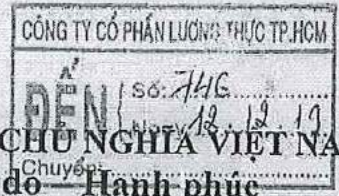 CÔNG TY CỔ PHẦN LƯƠNG THỰC TP.HCM
ĐẾN
Số: 746
Ngày 12.12.19
CHỦ NGHĨA VIỆT NA
Chuyển:
do Hạnh phúc